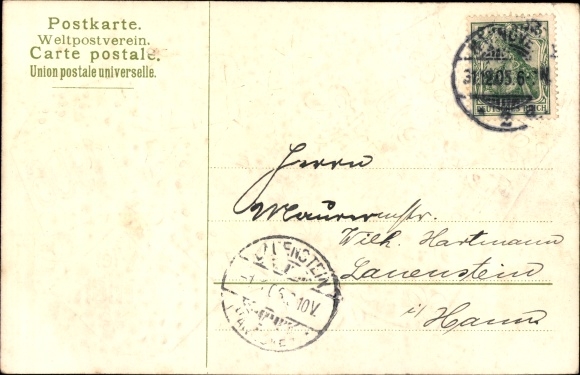 Postkarte.
Weltpostverein.
Carte postale.
Union postale universelle.
31.12.05.6-7N
2 a
Herrn
Maurermstr.
Wilh. Hartmann
Lauenstein
i/ Hann
LAUENSTEIN
10V.